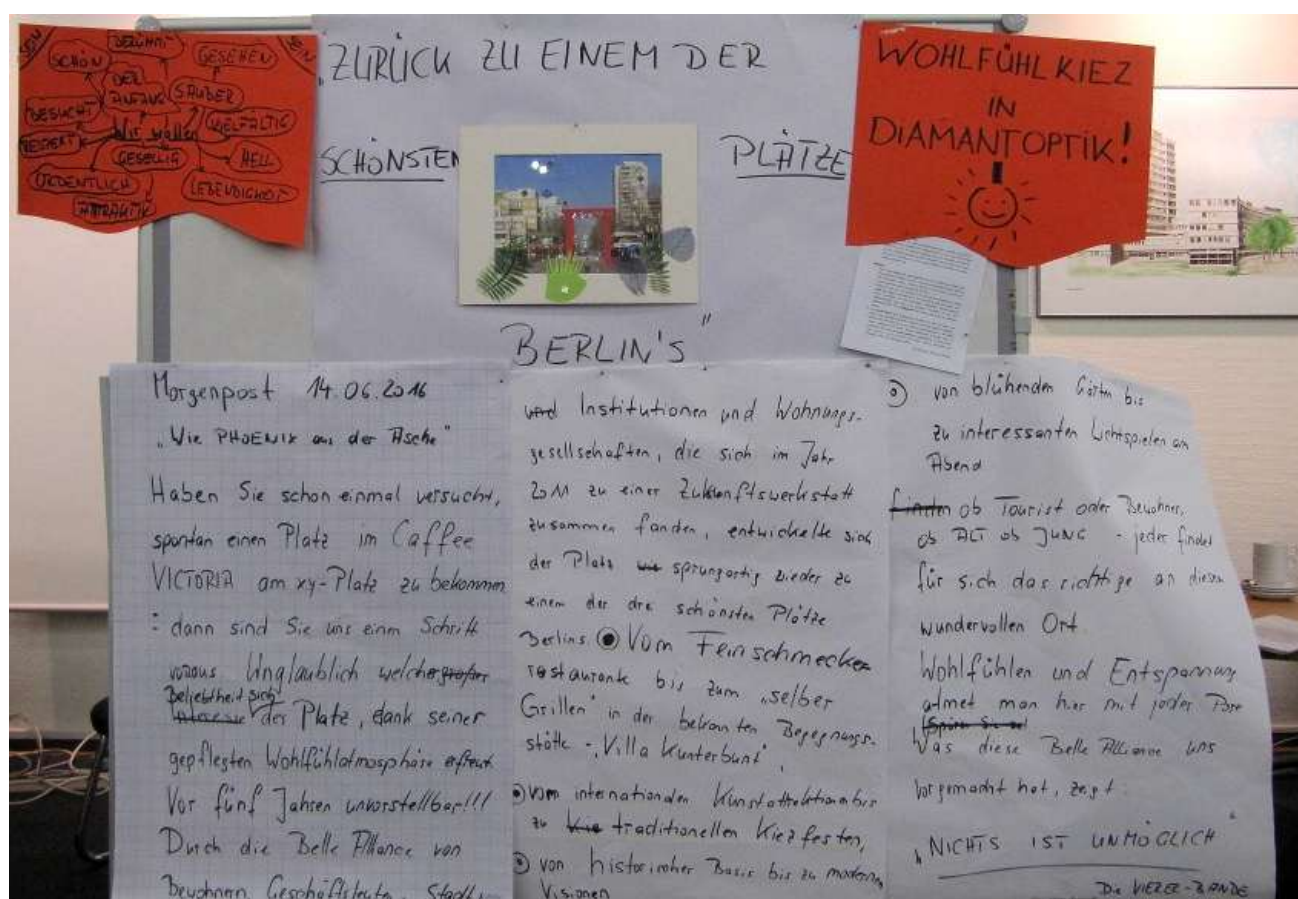 SEIN
SEIN
BERÜHMT
SCHÖN
GESEHEN
DER
ANFANG
SAUBER
BESUCHT
VIELFÄLTIG
RESPEKT
Wir wollen
GESELLIG
HELL
ORDENTLICH
LEBENDIGKEIT
ATTRAKTIV
„ZURÜCK ZU EINEM DER
SCHÖNSTEN PLÄTZE
BERLIN'S"
WOHLFÜHLKIEZ
IN
DIAMANTOPTIK!
Morgenpost 14.06.2016
„Wie PHOENIX aus der Asche"
Haben Sie schon einmal versucht,
spontan einen Platz im Caffee
VICTORIA am xy-Platz zu bekommen
: dann sind Sie uns einen Schritt
voraus Unglaublich welcher großer
Beliebtheit sich
Interesse der Platz, dank seiner
gepflegten Wohlfühlatmosphäre erfreut
Vor fünf Jahren unvorstellbar!!!
Durch die Belle Alliance von
Bewohnern Geschäftsleuten,
und Institutionen und Wohnungs-
gesellschaften, die sich im Jahr
2011 zu einer Zukunftswerkstatt
zusammen fanden, entwickelte sich
der Platz wie sprungartig wieder zu
einem der drei schönsten Plätze
Berlins Vom Feinschmecker
restaurants bis zum „selber
Grillen" in der bekannten Begegnungs-
stätte - „Villa Kunterbunt",
vom internationalen Kunstattraktionen bis
zu Kie traditionellen Kiezfesten,
von historischer Basis bis zu modernen
Visionen
von blühenden Gärten bis
zu interessanten Lichtspielen am
Abend
finden ob Tourist oder Bewohner,
ob ALT ob JUNG - jeder findet
für sich das richtige an diesem
wundervollen Ort.
Wohlfühlen und Entspannung
atmet man hier mit jeder Pore
Spüren Sie
Was diese Belle Alliance uns
vorgemacht hat, zeigt:
„NICHTS IST UNMÖGLICH"
Die VIERER-BANDE